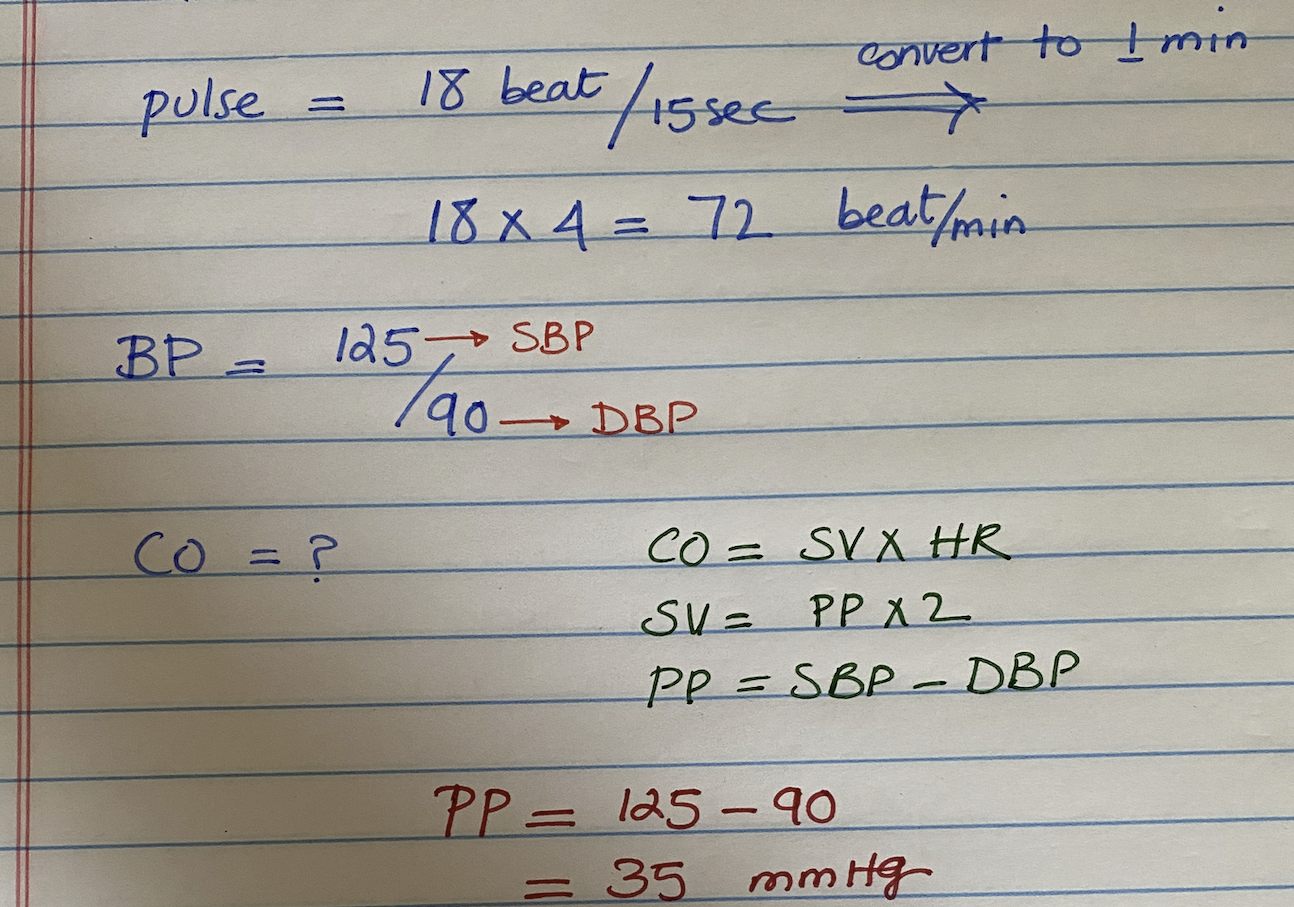 convert to 1 min
pulse = 18 beat/15sec ⟹
18 x 4 = 72 beat/min
BP = 125 → SBP
/90 → DBP
CO = ? CO = SV X HR
SV = PP X 2
PP = SBP - DBP
PP = 125 - 90
= 35 mmHg